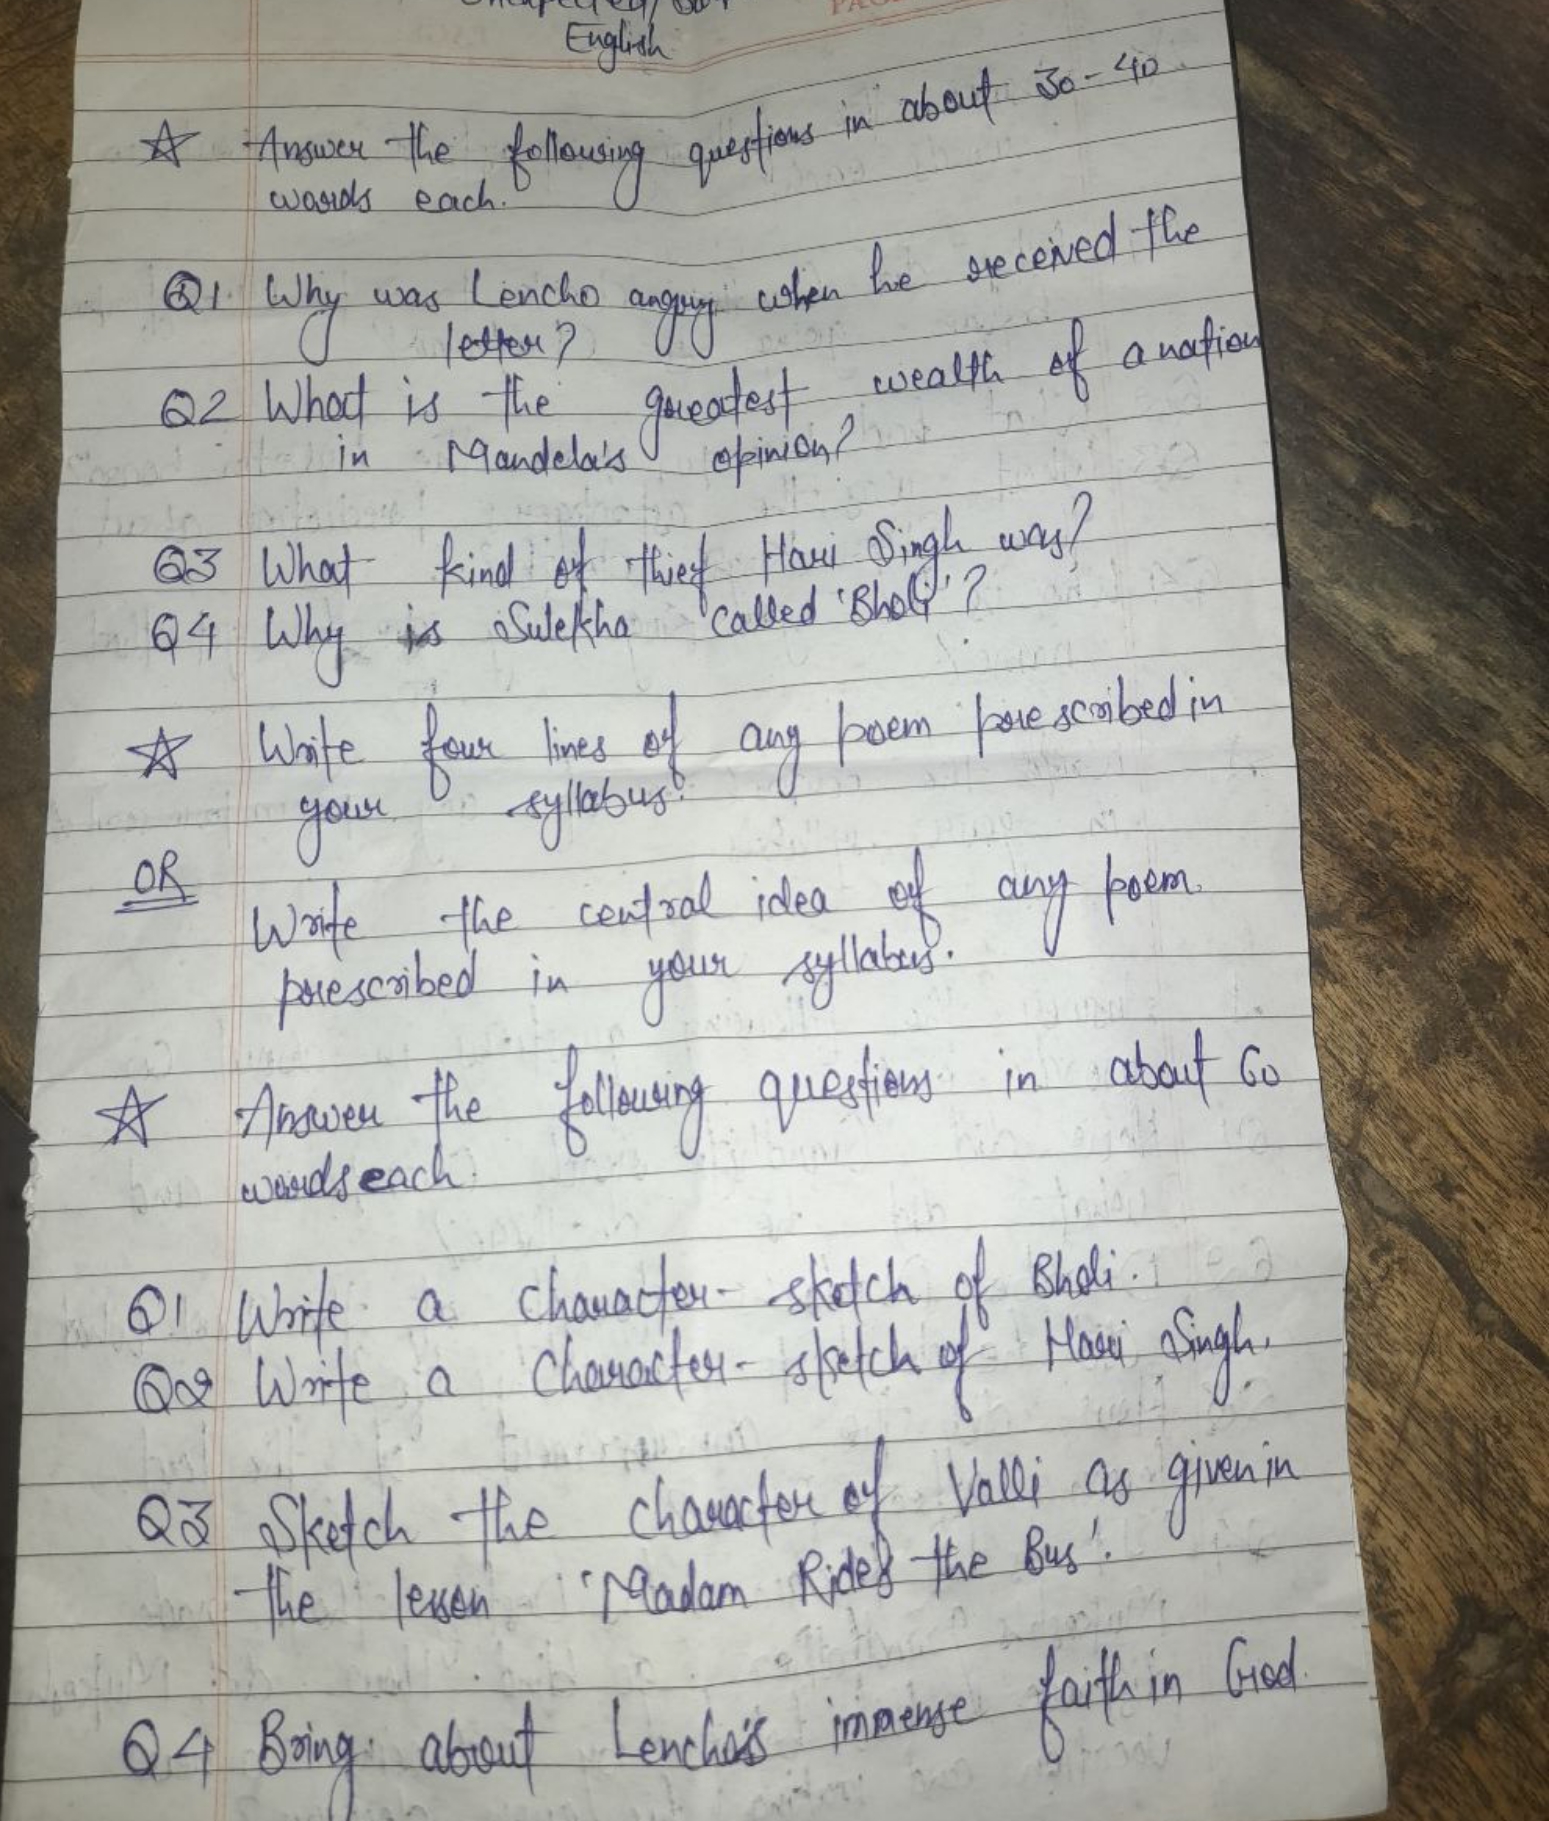 English
☆ Answer the following questions in about 30-40
words each.
Q1. Why was Lencho angry when he received the
letter?
Q2 What is the greatest wealth of a nation
in Mandela's opinion?
Q3 What kind of thief Hari Singh was?
Q4 Why is Sulekha called 'Bholi'?
☆ Write four lines of any poem prescribed in
your syllabus.
OR
Write the central idea of any poem
prescribed in your syllabus.
☆ Answer the following questions in about 60
words each.
Q1 Write a character-sketch of Bholi.
Q2 Write a Character-sketch of Hari Singh.
Q3 Sketch the character of Valli as given in
the lesson 'Madam Rides the Bus'.
Q4 Bring about Lencho's immense faith in God.